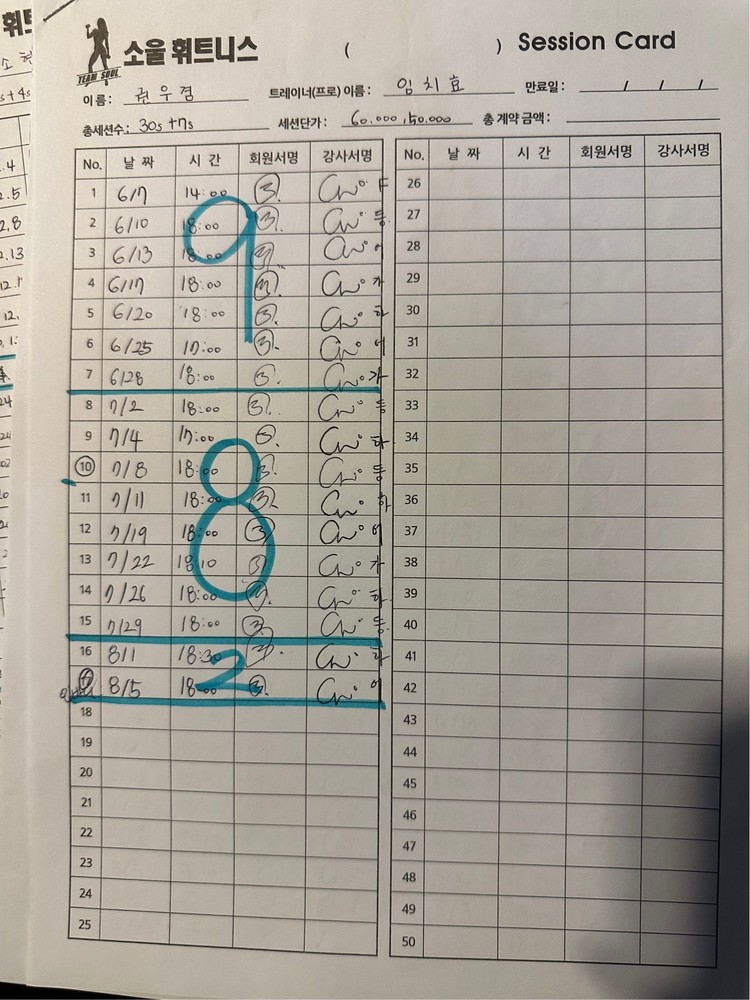 TEAM SOUL
소울 휘트니스 ( ) Session Card
이름: 권우겸 트레이너(프로) 이름: 임치효 만료일: / / /
총세션수: 30s+7s 세션단가: 60.000, 50.000 총 계약 금액:
No. 날 짜 시 간 회원서명 강사서명 No. 날 짜 시 간 회원서명 강사서명
1 6/7 14:00 F 26
2 6/10 18:00 등 27
3 6/13 18:00 어 28
4 6/17 18:00 가 29
5 6/20 18:00 하 30
6 6/25 17:00 어 31
7 6/28 18:00 가 32
9
8 7/2 18:00 등 33
9 7/4 17:00 하 34
10 7/8 18:00 등 35
11 7/11 18:00 하 36
12 7/19 18:00 어 37
13 7/22 18:10 가 38
14 7/26 18:00 하 39
15 7/29 18:00 등 40
8
16 8/1 18:30 41
17 8/5 18:00 어 42
2
18 43
19 44
20 45
21 46
22 47
23 48
24 49
25 50